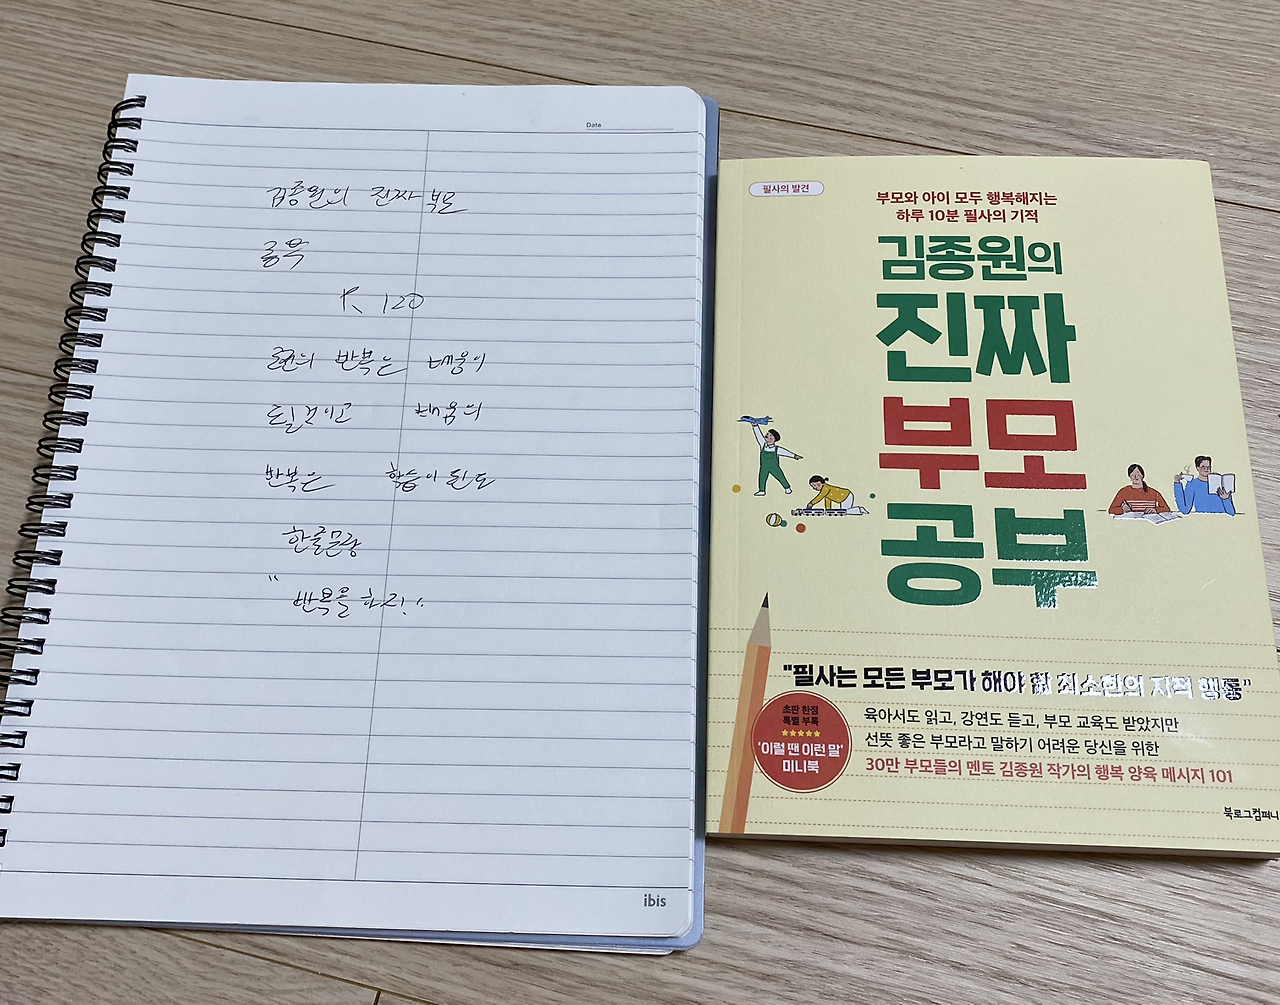 Date
김종원의 진짜 부모
공부
P. 120
반복은 배움이
배움의
반복은 학습이 된다
"반복을 하라!"
ibis
필사의 발견
부모와 아이 모두 행복해지는
하루 10분 필사의 기적
김종원의
진짜
부모
공부
"필사는 모든 부모가 해야 할 최소한의 지적 행동"
초판 한정
특별 부록
★★★★★
'이럴 땐 이런 말'
미니북
육아서도 읽고, 강연도 듣고, 부모 교육도 받았지만
선뜻 좋은 부모라고 말하기 어려운 당신을 위한
30만 부모들의 멘토 김종원 작가의 행복 양육 메시지 101
북로그컴퍼니